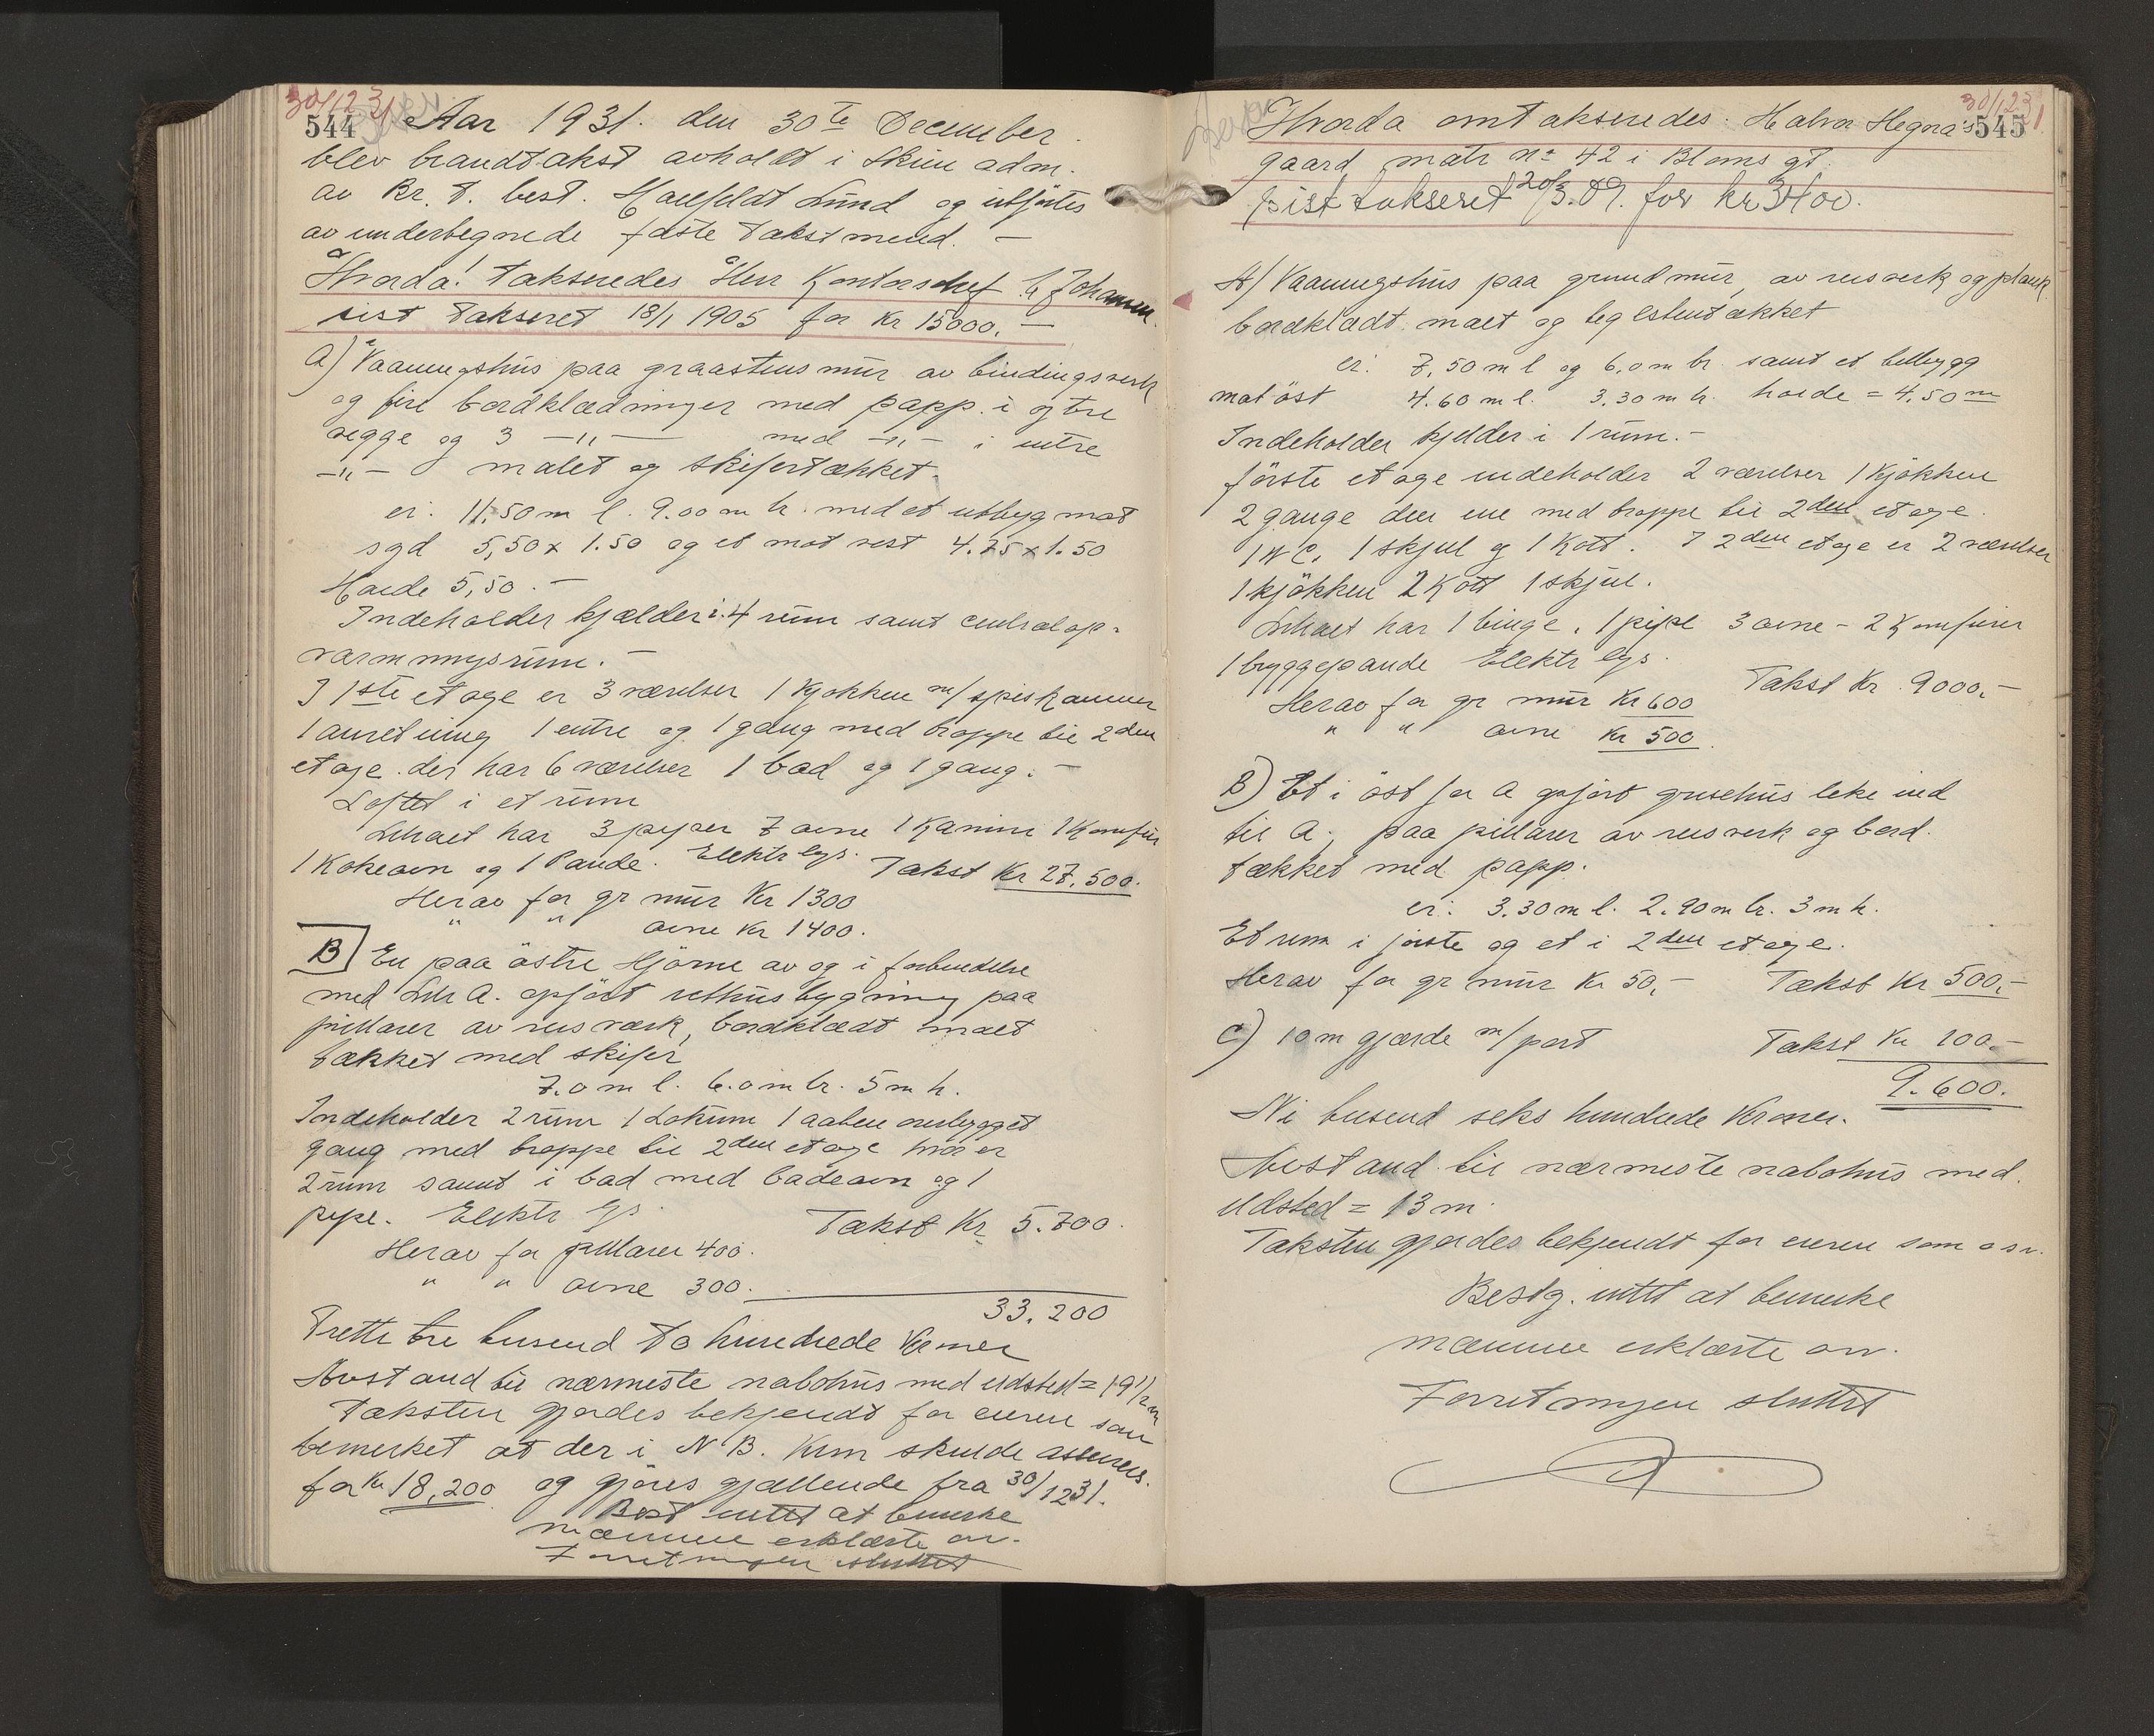 30/12 31
544 Aar 1931. den 30te December
blev brandtakst avholdt i Skien adm.
av Br. t. best. Hallfeldt Lund og utförtes
av undertegnede faste takstmend. —
Hvorda! takseredes Herr Kontorschef C. Johannsen.
sist takseret 18/1 1905 for Kr 15000. —
a) Vaaningshus paa graastensmur av bindingsverk
og fire bordklædninger med papp. i ytre
vegge og 3 —"— med —"— i intre
—"— malet og skifertækket.
er: 11.50 m l. 9.00 m br. med et utbyg mot
syd 5,50 x 1.50 og et mot vest 4.75 x 1.50
Høide 5,50. —
Indeholder kjælder i 4 rum samt centralop-
varmningsrum. —
I 1ste etage er 3 værelser 1 kjøkken m/ spiskammer
1 anretning 1 entre og 1 gang med trappe til 2den
etage. der har 6 værelser 1 bad og 1 gang. —
Loftet i et rum
Lithaet har 3 piper 7 ovne 1 Kamin 1 Komfur
1 Kokeovn og 1 Pande. Elektr lys. Takst Kr 27.500.
Herav for gr mur Kr 1300
" " ovne Kr 1400.
B En paa östre Hjörne av og i forbindelse
med Litr A. opfört uthusbygning paa
pillarer av reisværk, bordklædt malt
tækket med skifer
7.0 m l. 6.0 m br. 5 m h.
Indeholder 2 rum 1 Lokum 1 aaben ombygget
gang med trappe til 2den etage hvor er
2 rum samt i bad med badeovn og 1
pipe. Elektr lys. Takst Kr 5.700.
Herav for pillarer 400.
" " ovne 300.
33.200
Tretti tre tusend to hundrede Kroner
Avstand til nærmeste nabohus med ildsted = 19 1/2 m
Taksten gjordes bekjendt for eieren som
bemerket at der i N B. Krm skulde assureres.
for Kr 18,200 og gjöres gjællende fra 30/12 31.
Best intet at bemerke
mændene erklærte osv.
Forretningen sluttet
30/12 31
545
Hvorda omtakseredes. Halvor Hegna's
gaard matr no 42 i Bloms gt.
sist takseret 20/3.09. for kr 3400.
A) Vaaningshus paa grundmur, av reisverk og plank
bordklædt. malt og teglstentækket
er: 7,50 m l og 6,0 m br. samt et tilbygg
mot öst 4.60 m l. 3.30 m br. høide = 4.50 m
Indeholder kjelder i 1 rum. —
förste etage indeholder 2 værelser 1 kjökken
2 gange den ene med trappe til 2den etage.
1 WC. 1 skjul og 1 Kott. I 2den etage er 2 værelser
1 kjökken 2 Kott 1 skjul.
Lithaet har 1 binge. 1 pipe 3 ovne - 2 Komfurer
1 bryggepande Elektr lys.
Takst Kr. 9000. —
Herav for gr mur Kr 600
" " ovne Kr 500.
B) Et i öst for A opfört gruehus like ind
til A, paa pillarer av reisverk og bord.
tækket med papp.
er: 3.30 m l. 2.90 m br. 3 m h.
Et rum i förste og et i 2den etage.
Herav for gr mur Kr 50,- Takst Kr 500,-
C) 10 m gjærde m/ port Takst Kr 100.-
9.600.
Ni tusend seks hundrede Kroner.
Avstand til nærmeste nabohus med.
ildsted = 13 m.
Taksten gjordes bekjendt for eieren som osv.
Bestg. intet at bemerke
mændene erklærte osv.
Forretningen sluttet